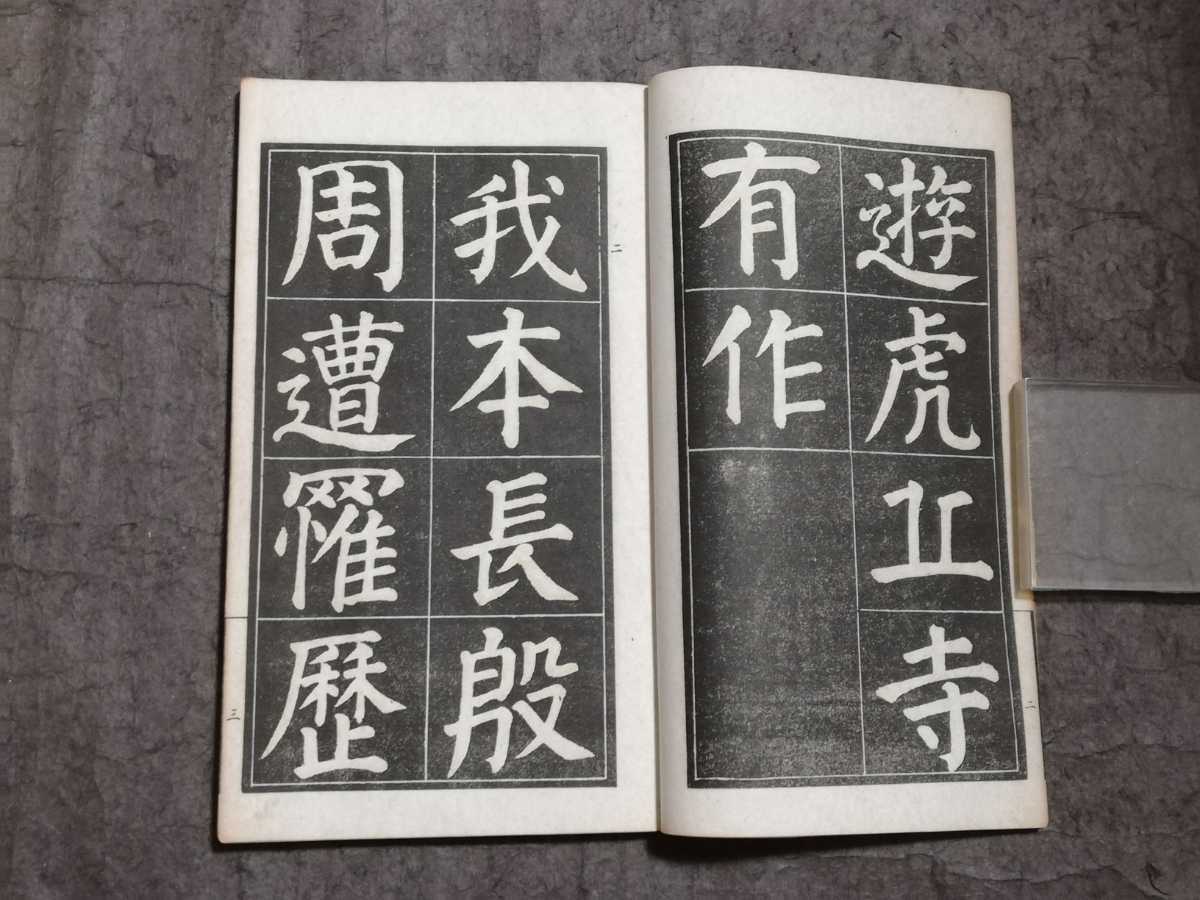 遊虎丘寺
有作
二
我本長殷
周遭罹歷
二
三